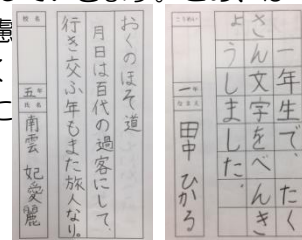 おくのほそ道
月日は百代の過客にして、
行き交ふ年もまた旅人なり。
五年
氏名
南雲 妃愛麗
一年生で、たく
さん文字をべんき
ょうしました。
一年
なまえ
田中 ひかる